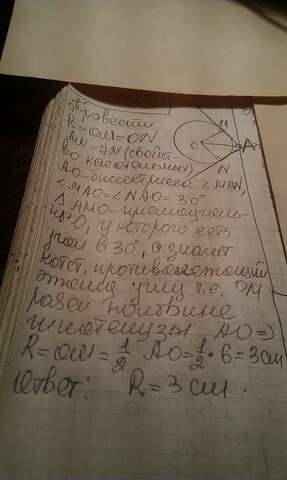 Провести
R = OM = ON
AM = AN (свойст-
во касательных)
AO - биссектриса ∠MAN,
∠MAO = ∠NAO = 30°
△ AMO - прямоуголь-
у которого есть
угол в 30°, а значит
катет, противолежащий
этому углу т.е. OM
равен половине
гипотенузы AO =>
R = OM = 1/2 AO = 1/2 · 6 = 3 см
Ответ: R = 3 см.
M
O
A
N